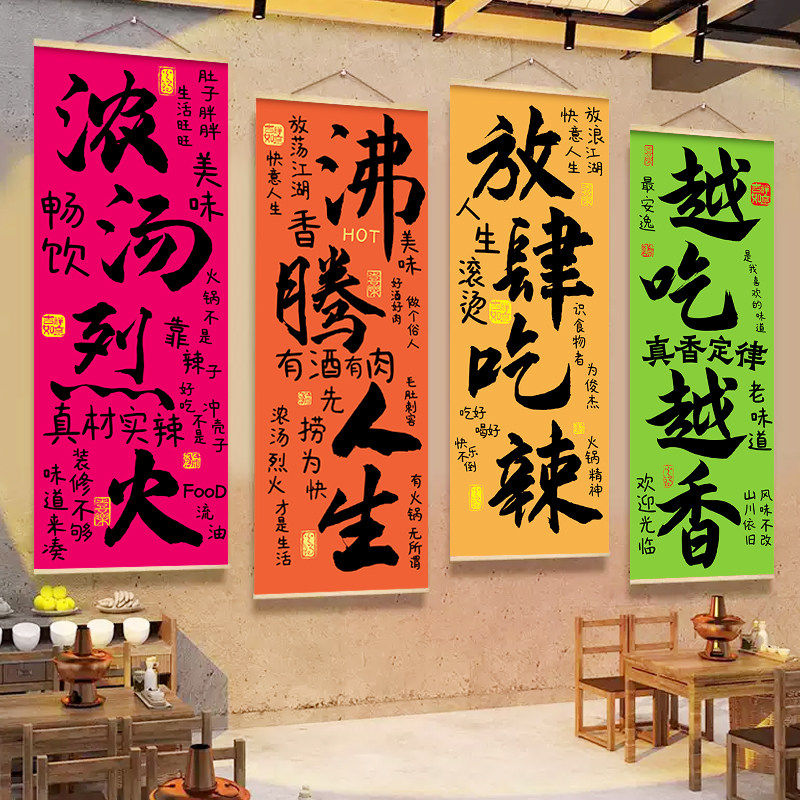 浓汤烈火
肚子胖胖
生活旺旺
美味
畅饮
火锅不是
靠辣子
好吃不是
冲壳子
真材实辣
装修不够
味道来凑
FooD
流油
沸腾人生
放荡江湖
快意人生
香
HOT
美味
好酒好肉
做个俗人
有酒有肉
毛肚刺客
先捞为快
浓汤烈火
才是生活
有火锅
无所谓
放肆吃辣
放浪江湖
快意人生
人生滚烫
识食物者
为俊杰
吃好
喝好
快乐
不倒
火锅精神
越吃越香
最安逸
是我喜欢的味道
真香定律
老味道
欢迎光临
风味不改
山川依旧